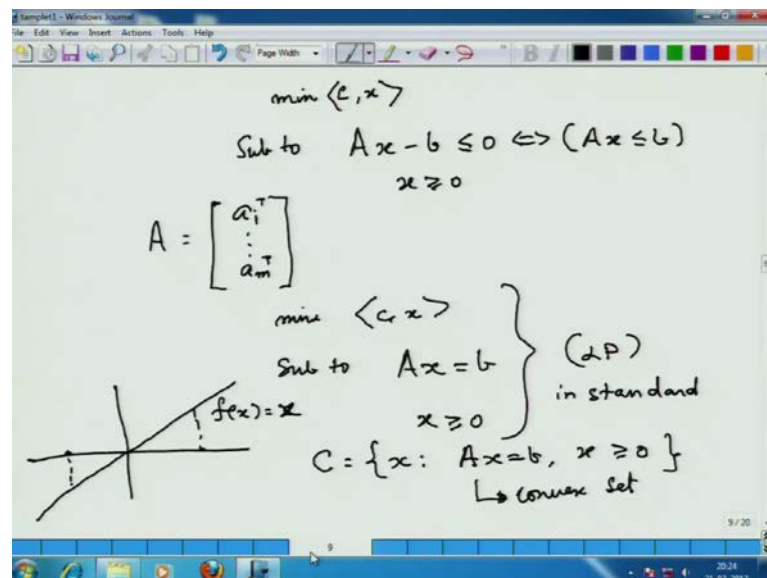 tamplet1 - Windows Journal
File Edit View Insert Actions Tools Help
Page Width
min <c, x>
Sub to Ax - b ≤ 0 <=> (Ax ≤ b)
x ≥ 0
A = [a_i^T ⋮ a_m^T]
min <c, x>
Sub to Ax = b
x ≥ 0
(LP)
in standard
f(x) = x
C = {x : Ax = b, x ≥ 0}
↳ convex set
9 / 20
9
20:24